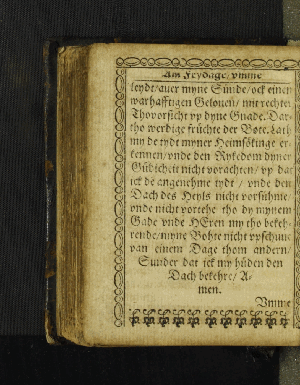 Am Frydage, vmme
leydt/auer myne Sünde/ock einen
warhafftigen Gelouen/ mit rechter
Thovorsicht vp dyne Gnade. Dar-
tho werdige früchte der Bote. Lath
my de tydt myner Heimsökinge er-
kennen/vnde den Rykedom dyner
Güdicheit nicht vorachten/ vp dat
ick de angenehme tydt / vnde den
Dach des Heyls nicht vorsühme/
vnde nicht vortehe tho dy mynem
Gade vnde HEren my tho bekeh-
rende/myne Bohte nicht vpschuue
van einem Dage thom andern/
Sunder dat ick my hüden den
Dach bekehre/ A-
men.
Vmme